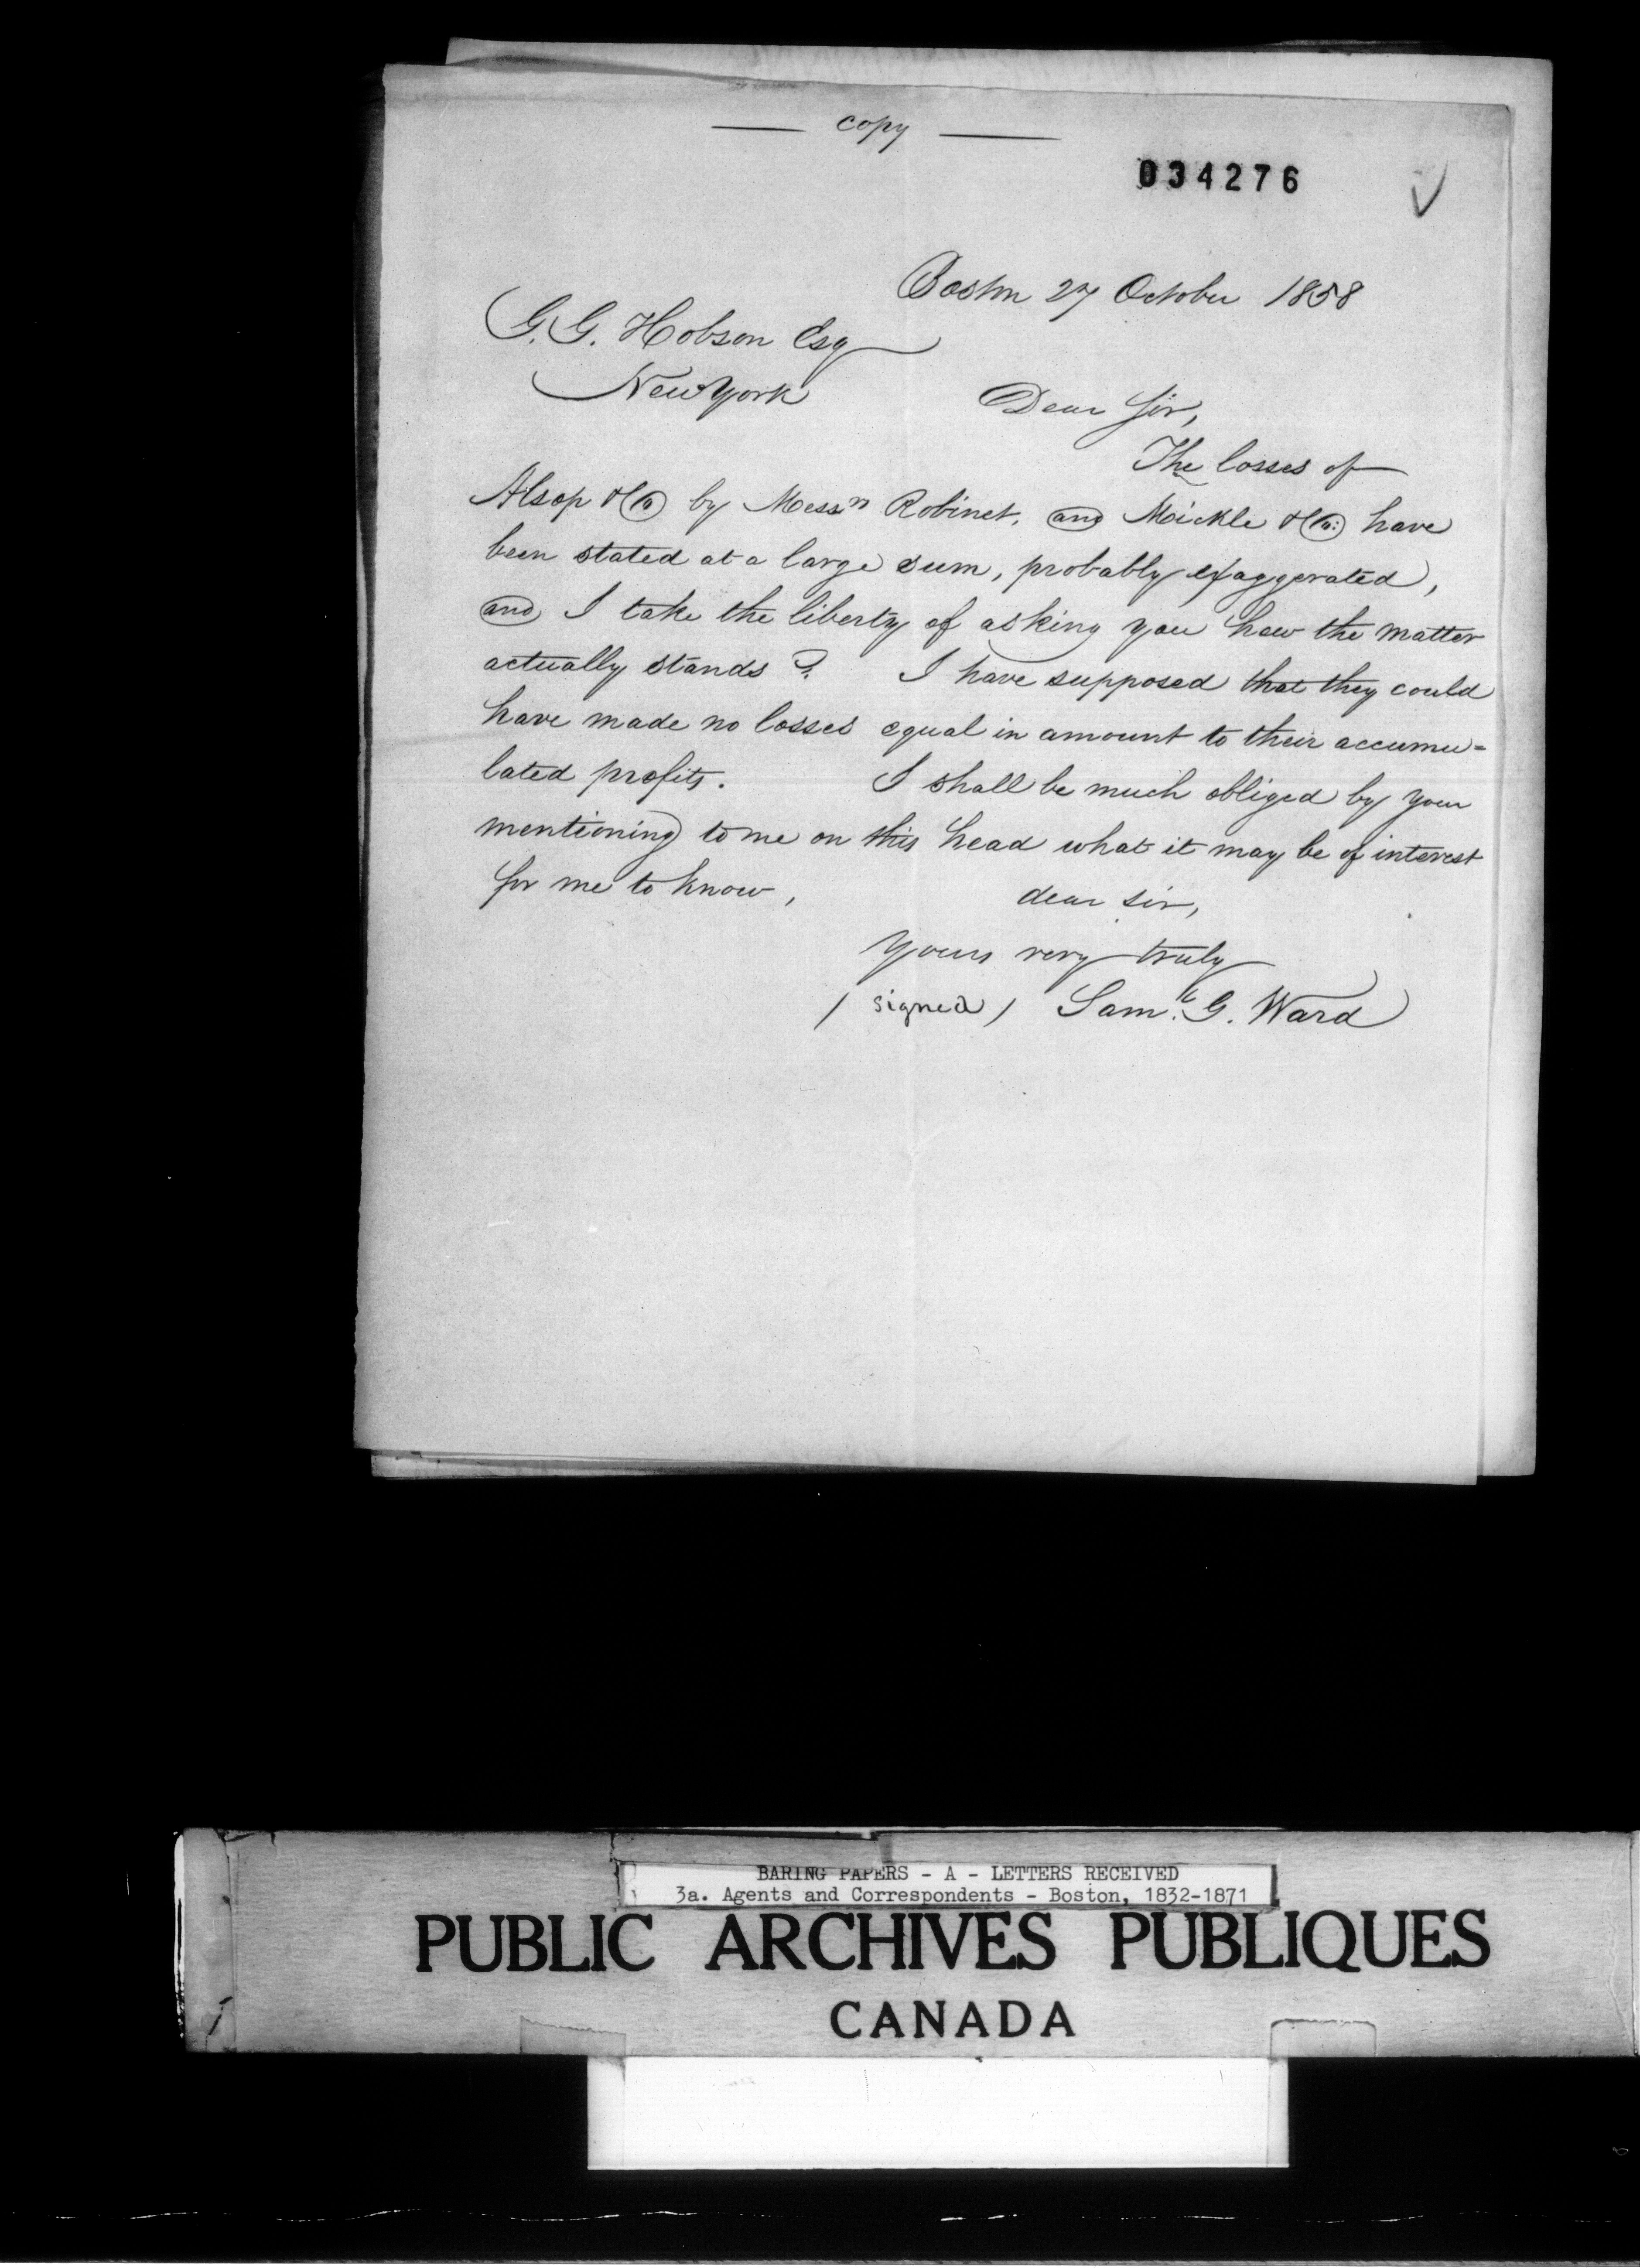 copy
034276
Boston 27 October 1858
G. G. Hobson Esq
New York
Dear Sir,
The losses of
Alsop & Co by Messrs Robinet, and Mickle & Co: have
been stated at a large sum, probably exaggerated,
and I take the liberty of asking you how the matter
actually stands? I have supposed that they could
have made no losses equal in amount to their accumu=
lated profits. I shall be much obliged by your
mentioning to me on this head what it may be of interest
for me to know,
dear sir,
Yours very truly
/ signed / Saml. G. Ward
BARING PAPERS - A - LETTERS RECEIVED
3a. Agents and Correspondents - Boston, 1832-1871
PUBLIC ARCHIVES PUBLIQUES
CANADA